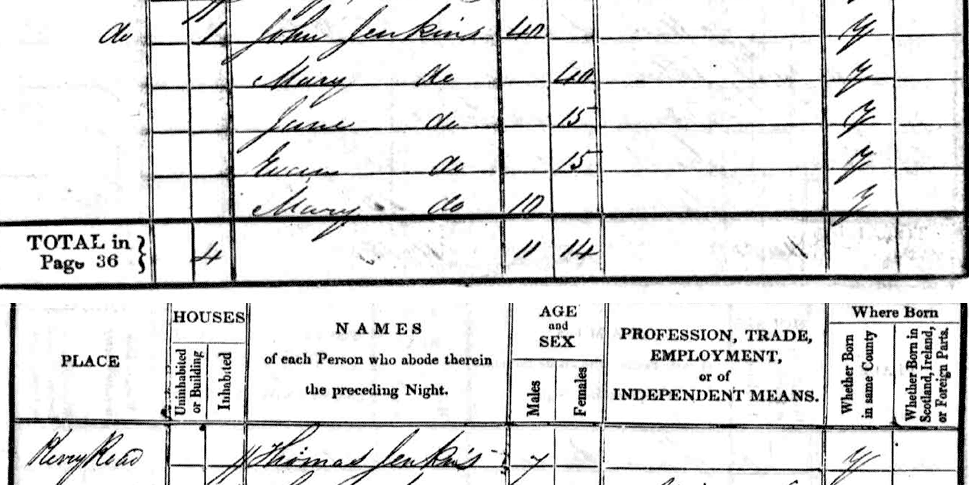 do 1 John Jenkins 40 Y
Mary do 40 Y
Jane do 15 Y
Evan do 15 Y
Mary do 10 Y
TOTAL in Page 36 4 11 14
PLACE
HOUSES
Uninhabited or Building
Inhabited
NAMES
of each Person who abode therein
the preceding Night.
AGE
and
SEX
Males
Females
PROFESSION, TRADE,
EMPLOYMENT,
or of
INDEPENDENT MEANS.
Where Born
Whether Born
in same County
Whether Born in
Scotland, Ireland,
or Foreign Parts.
Road Thomas Jenkins 7 Y